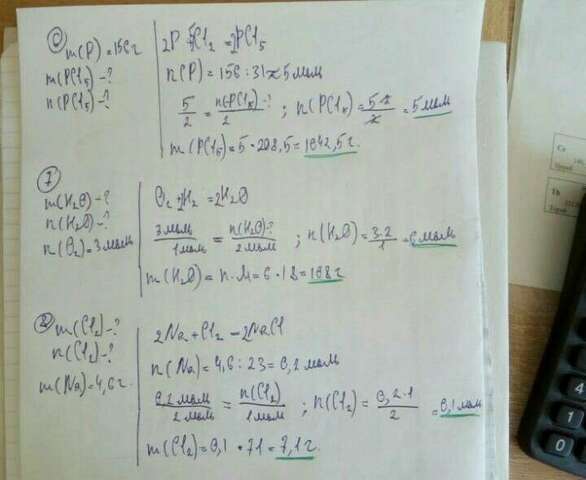 6 m(P) = 156г
m(PCl5) - ?
n(PCl5) - ?
2P + 5Cl2 = 2PCl5
n(P) = 156 : 31 ≈ 5 моль
5/2 = n(PCl5)-?/2 ; n(PCl5) = 5·2/2 = 5 моль
m(PCl5) = 5 · 208,5 = 1042,5 г.
7
m(H2O) - ?
n(H2O) - ?
n(O2) = 3 моль
O2 + 2H2 = 2H2O
3 моль/1 моль = n(H2O)?/2 моль ; n(H2O) = 3·2/1 = 6 моль
m(H2O) = n · M = 6 · 18 = 108 г
8 m(Cl2) - ?
n(Cl2) - ?
m(Na) = 4,6 г.
2Na + Cl2 = 2NaCl
n(Na) = 4,6 : 23 = 0,2 моль
0,2 моль/2 моль = n(Cl2)/1 моль ; n(Cl2) = 0,2·1/2 = 0,1 моль
m(Cl2) = 0,1 · 71 = 7,1 г.
Ce
Th
7
4
1
0